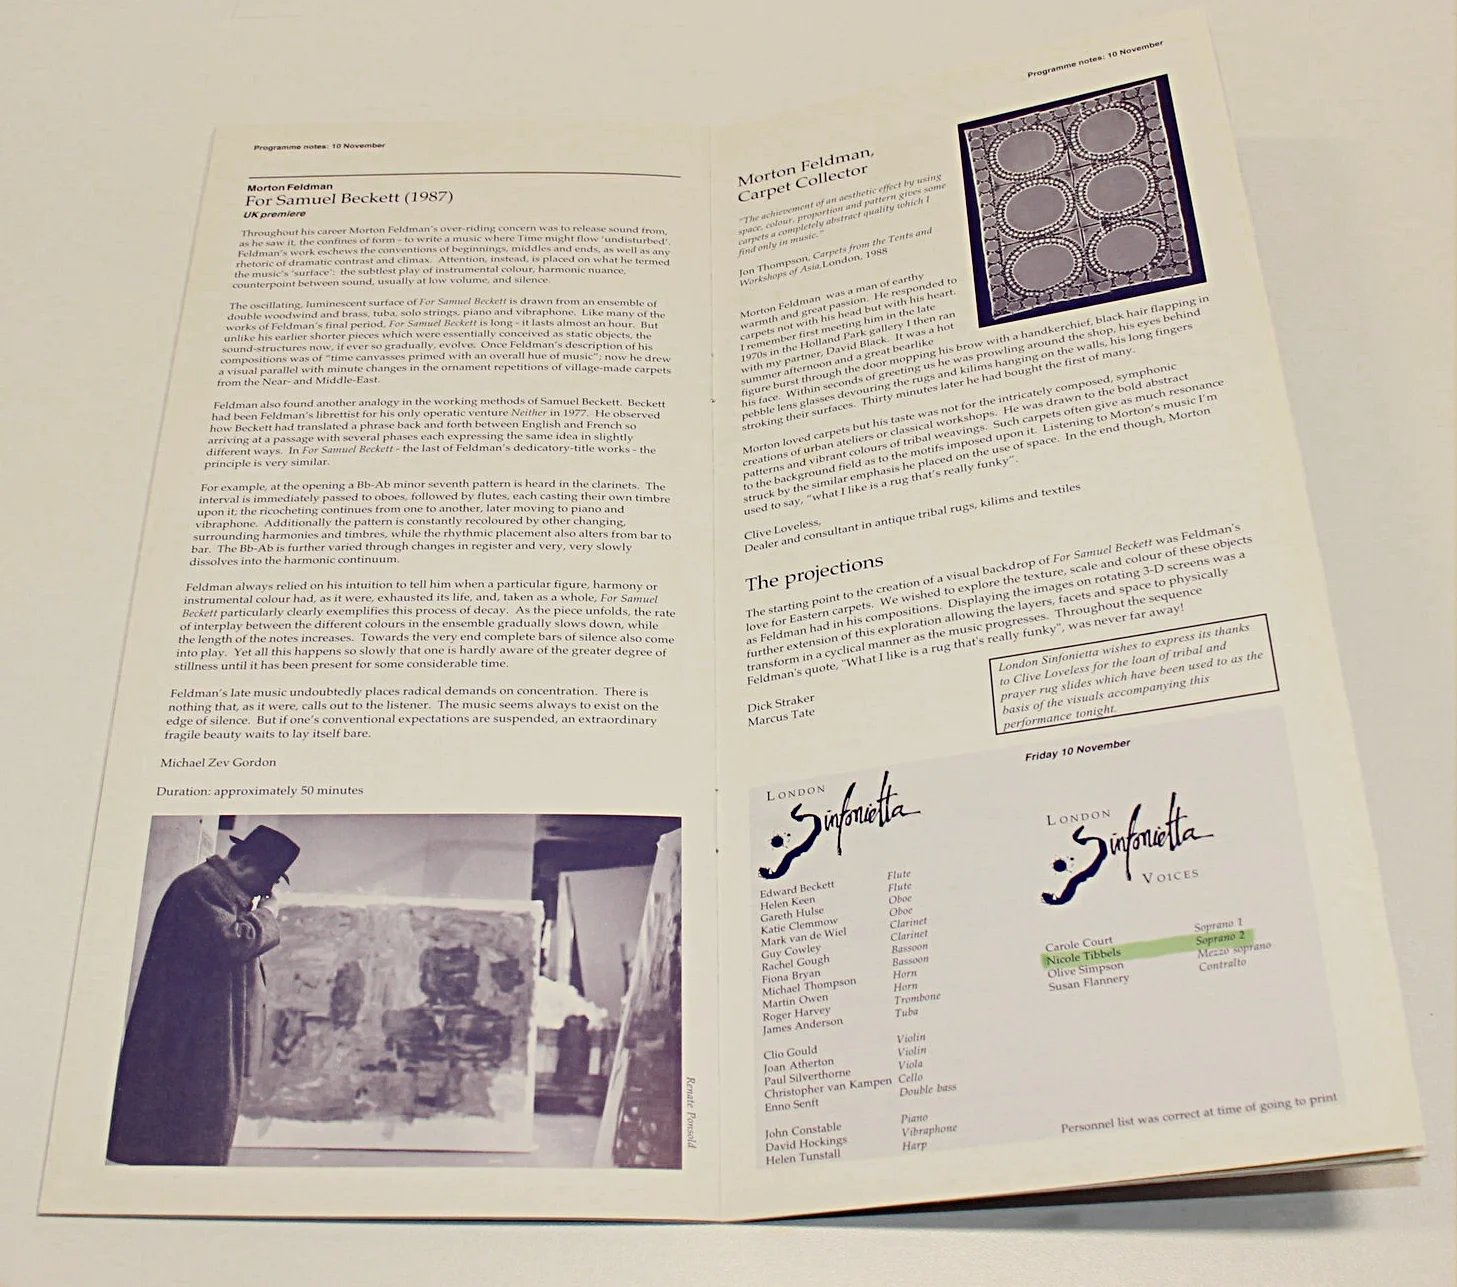 Programme notes: 10 November
Morton Feldman
For Samuel Beckett (1987)
UK premiere
Throughout his career Morton Feldman's over-riding concern was to release sound from,
as he saw it, the confines of form - to write a music where Time might flow 'undisturbed'.
Feldman's work eschews the conventions of beginnings, middles and ends, as well as any
rhetoric of dramatic contrast and climax. Attention, instead, is placed on what he termed
the music's 'surface': the subtlest play of instrumental colour, harmonic nuance,
counterpoint between sound, usually at low volume, and silence.
The oscillating, luminescent surface of For Samuel Beckett is drawn from an ensemble of
double woodwind and brass, tuba, solo strings, piano and vibraphone. Like many of the
works of Feldman's final period, For Samuel Beckett is long - it lasts almost an hour. But
unlike his earlier shorter pieces which were essentially conceived as static objects, the
sound-structures now, if ever so gradually, evolve. Once Feldman's description of his
compositions was of "time canvasses primed with an overall hue of music"; now he drew
a visual parallel with minute changes in the ornament repetitions of village-made carpets
from the Near- and Middle-East.
Feldman also found another analogy in the working methods of Samuel Beckett. Beckett
had been Feldman's librettist for his only operatic venture Neither in 1977. He observed
how Beckett had translated a phrase back and forth between English and French so
arriving at a passage with several phases each expressing the same idea in slightly
different ways. In For Samuel Beckett - the last of Feldman's dedicatory-title works - the
principle is very similar.
For example, at the opening a Bb-Ab minor seventh pattern is heard in the clarinets. The
interval is immediately passed to oboes, followed by flutes, each casting their own timbre
upon it; the ricocheting continues from one to another, later moving to piano and
vibraphone. Additionally the pattern is constantly recoloured by other changing,
surrounding harmonies and timbres, while the rhythmic placement also alters from bar to
bar. The Bb-Ab is further varied through changes in register and very, very slowly
dissolves into the harmonic continuum.
Feldman always relied on his intuition to tell him when a particular figure, harmony or
instrumental colour had, as it were, exhausted its life, and, taken as a whole, For Samuel
Beckett particularly clearly exemplifies this process of decay. As the piece unfolds, the rate
of interplay between the different colours in the ensemble gradually slows down, while
the length of the notes increases. Towards the very end complete bars of silence also come
into play. Yet all this happens so slowly that one is hardly aware of the greater degree of
stillness until it has been present for some considerable time.
Feldman's late music undoubtedly places radical demands on concentration. There is
nothing that, as it were, calls out to the listener. The music seems always to exist on the
edge of silence. But if one's conventional expectations are suspended, an extraordinary
fragile beauty waits to lay itself bare.
Michael Zev Gordon
Duration: approximately 50 minutes
Renate Ponsold
Programme notes: 10 November
Morton Feldman,
Carpet Collector
"The achievement of an aesthetic effect by using
space, colour, proportion and pattern gives some
carpets a completely abstract quality which I
find only in music."
Jon Thompson, Carpets from the Tents and
Workshops of Asia, London, 1988
Morton Feldman was a man of earthy
warmth and great passion. He responded to
carpets not with his head but with his heart.
I remember first meeting him in the late
1970s in the Holland Park gallery I then ran
with my partner, David Black. It was a hot
summer afternoon and a great bearlike
figure burst through the door mopping his brow with a handkerchief, black hair flapping in
his face. Within seconds of greeting us he was prowling around the shop, his eyes behind
pebble lens glasses devouring the rugs and kilims hanging on the walls, his long fingers
stroking their surfaces. Thirty minutes later he had bought the first of many.
Morton loved carpets but his taste was not for the intricately composed, symphonic
creations of urban ateliers or classical workshops. He was drawn to the bold abstract
patterns and vibrant colours of tribal weavings. Such carpets often give as much resonance
to the background field as to the motifs imposed upon it. Listening to Morton's music I'm
struck by the similar emphasis he placed on the use of space. In the end though, Morton
used to say, "what I like is a rug that's really funky".
Clive Loveless,
Dealer and consultant in antique tribal rugs, kilims and textiles
The projections
The starting point to the creation of a visual backdrop of For Samuel Beckett was Feldman's
love for Eastern carpets. We wished to explore the texture, scale and colour of these objects
as Feldman had in his compositions. Displaying the images on rotating 3-D screens was a
further extension of this exploration allowing the layers, facets and space to physically
transform in a cyclical manner as the music progresses. Throughout the sequence
Feldman's quote, "What I like is a rug that's really funky", was never far away!
Dick Straker
Marcus Tate
London Sinfonietta wishes to express its thanks
to Clive Loveless for the loan of tribal and
prayer rug slides which have been used to as the
basis of the visuals accompanying this
performance tonight.
Friday 10 November
LONDON
Sinfonietta
Edward Beckett Flute
Helen Keen Flute
Gareth Hulse Oboe
Katie Clemmow Oboe
Mark van de Wiel Clarinet
Guy Cowley Clarinet
Rachel Gough Bassoon
Fiona Bryan Bassoon
Michael Thompson Horn
Martin Owen Horn
Roger Harvey Trombone
James Anderson Tuba
Clio Gould Violin
Joan Atherton Violin
Paul Silverthorne Viola
Christopher van Kampen Cello
Enno Senft Double bass
John Constable Piano
David Hockings Vibraphone
Helen Tunstall Harp
LONDON
Sinfonietta
VOICES
Carole Court Soprano 1
Nicole Tibbels Soprano 2
Olive Simpson Mezzo soprano
Susan Flannery Contralto
Personnel list was correct at time of going to print